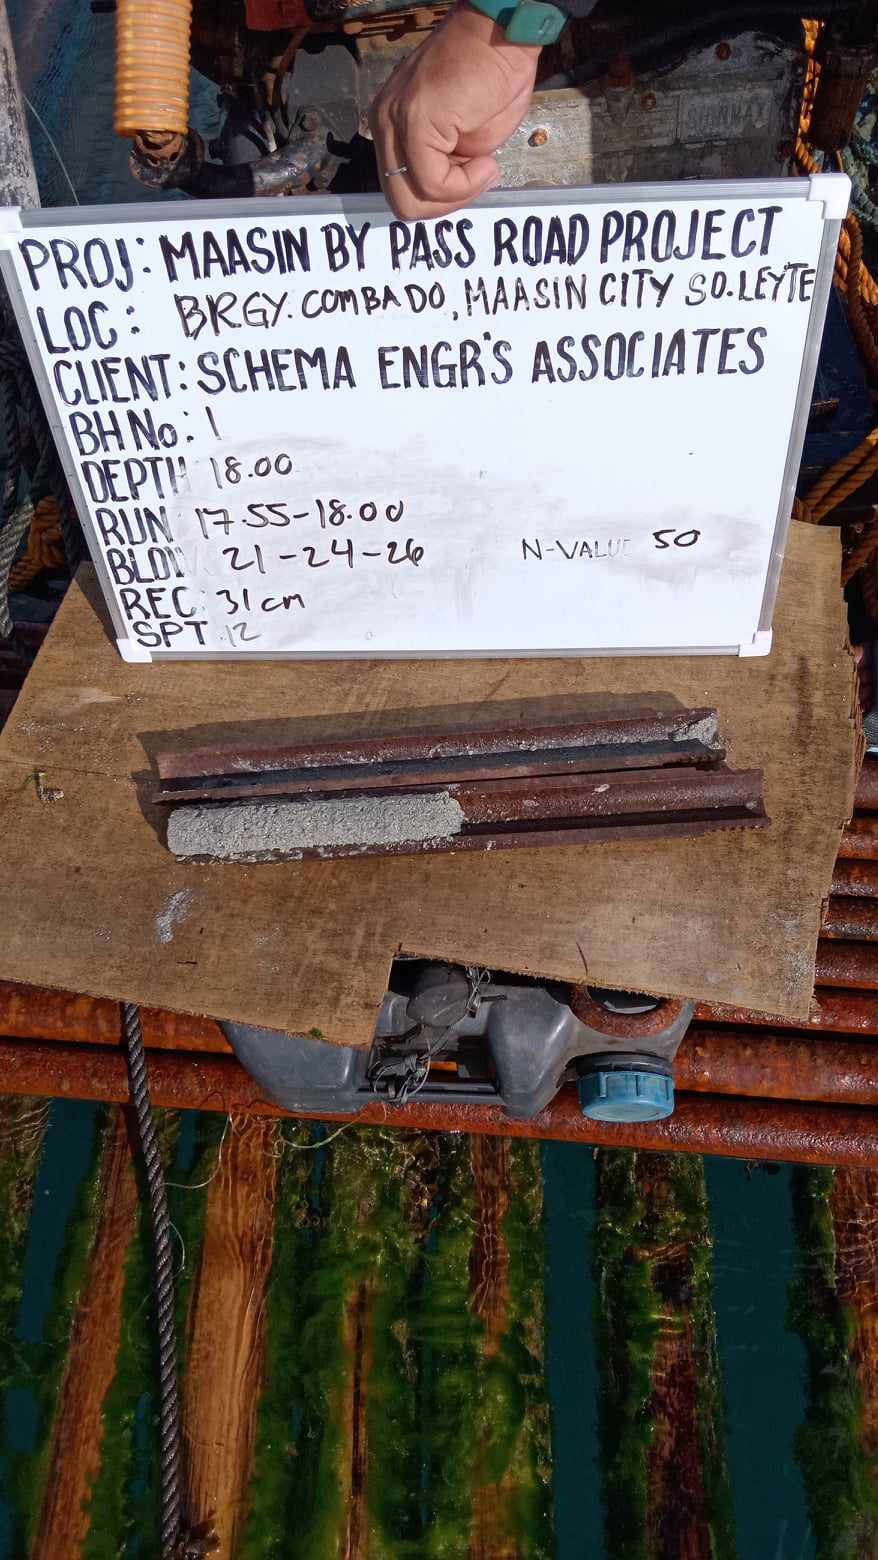 PROJ: MAASIN BY PASS ROAD PROJECT
LOC: BRGY. COMBADO, MAASIN CITY SO. LEYTE
CLIENT: SCHEMA ENGR'S ASSOCIATES
BH No: 1
DEPTH 18.00
RUN 17.55-18.00
BLOW 21-24-26 N-VALUE 50
REC: 31cm
SPT 12